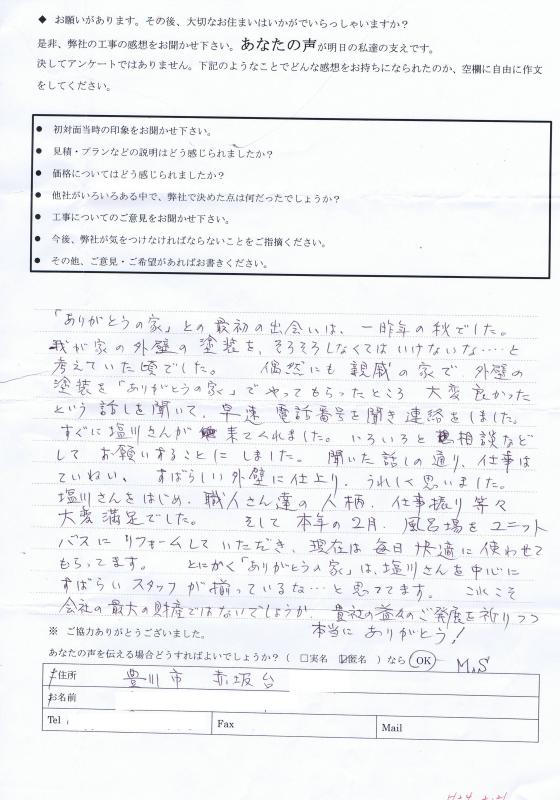 ◆ お願いがあります。その後、大切なお住まいはいかがでいらっしゃいますか？
是非、弊社の工事の感想をお聞かせ下さい。あなたの声が明日の私達の支えです。
決してアンケートではありません。下記のようなことでどんな感想をお持ちになられたのか、空欄に自由に作文
をしてください。
● 初対面当時の印象をお聞かせ下さい。
● 見積・プランなどの説明はどう感じられましたか？
● 価格についてはどう感じられましたか？
● 他社がいろいろある中で、弊社で決めた点は何だったでしょうか？
● 工事についてのご意見をお聞かせ下さい。
● 今後、弊社が気をつけなければならないことをご指摘ください。
● その他、ご意見・ご希望があればお書きください。
「ありがとうの家」との最初の出会いは、一昨年の秋でした。
我が家の外壁の塗装を、そろそろしなくてはいけないな‥‥と
考えていた頃でした。 偶然にも親戚の家で外壁の
塗装を「ありがとうの家」でやってもらったところ 大変良かった
という話しを聞いて、早速電話番号を聞き連絡をしました。
すぐに塩川さんが来てくれました。いろいろと相談など
して お願いすることにしました。 聞いた話しの通り、仕事は
ていねい、すばらしい外壁に仕上り、うれしく思いました。
塩川さんをはじめ、職人さん達の人柄、仕事振り等々
大変満足でした。 そして本年の2月、風呂場をユニット
バスにリフォームしていただき、現在は毎日快適に使わせて
もらってます。 とにかく「ありがとうの家」は、塩川さんを中心に
すばらいスタッフが揃っているな‥‥と思ってます。 これこそ
会社の最大の財産ではないでしょうか、貴社の益々のご発展を祈りつつ
本当にありがとう！
※ ご協力ありがとうございました。
あなたの声を伝える場合どうすればよいでしょうか？（ □実名 ☑匿名 ）なら OK M.S
住所 豊川市 赤坂台
お名前
Tel Fax Mail